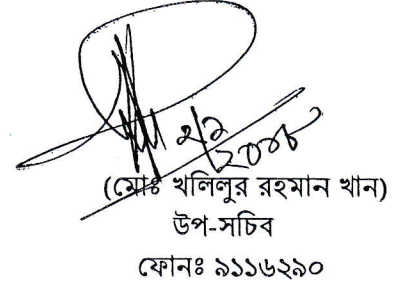 ২/১
২০০৮
(মোঃ খলিলুর রহমান খান)
উপ-সচিব
ফোনঃ ৯১১৬২৯০